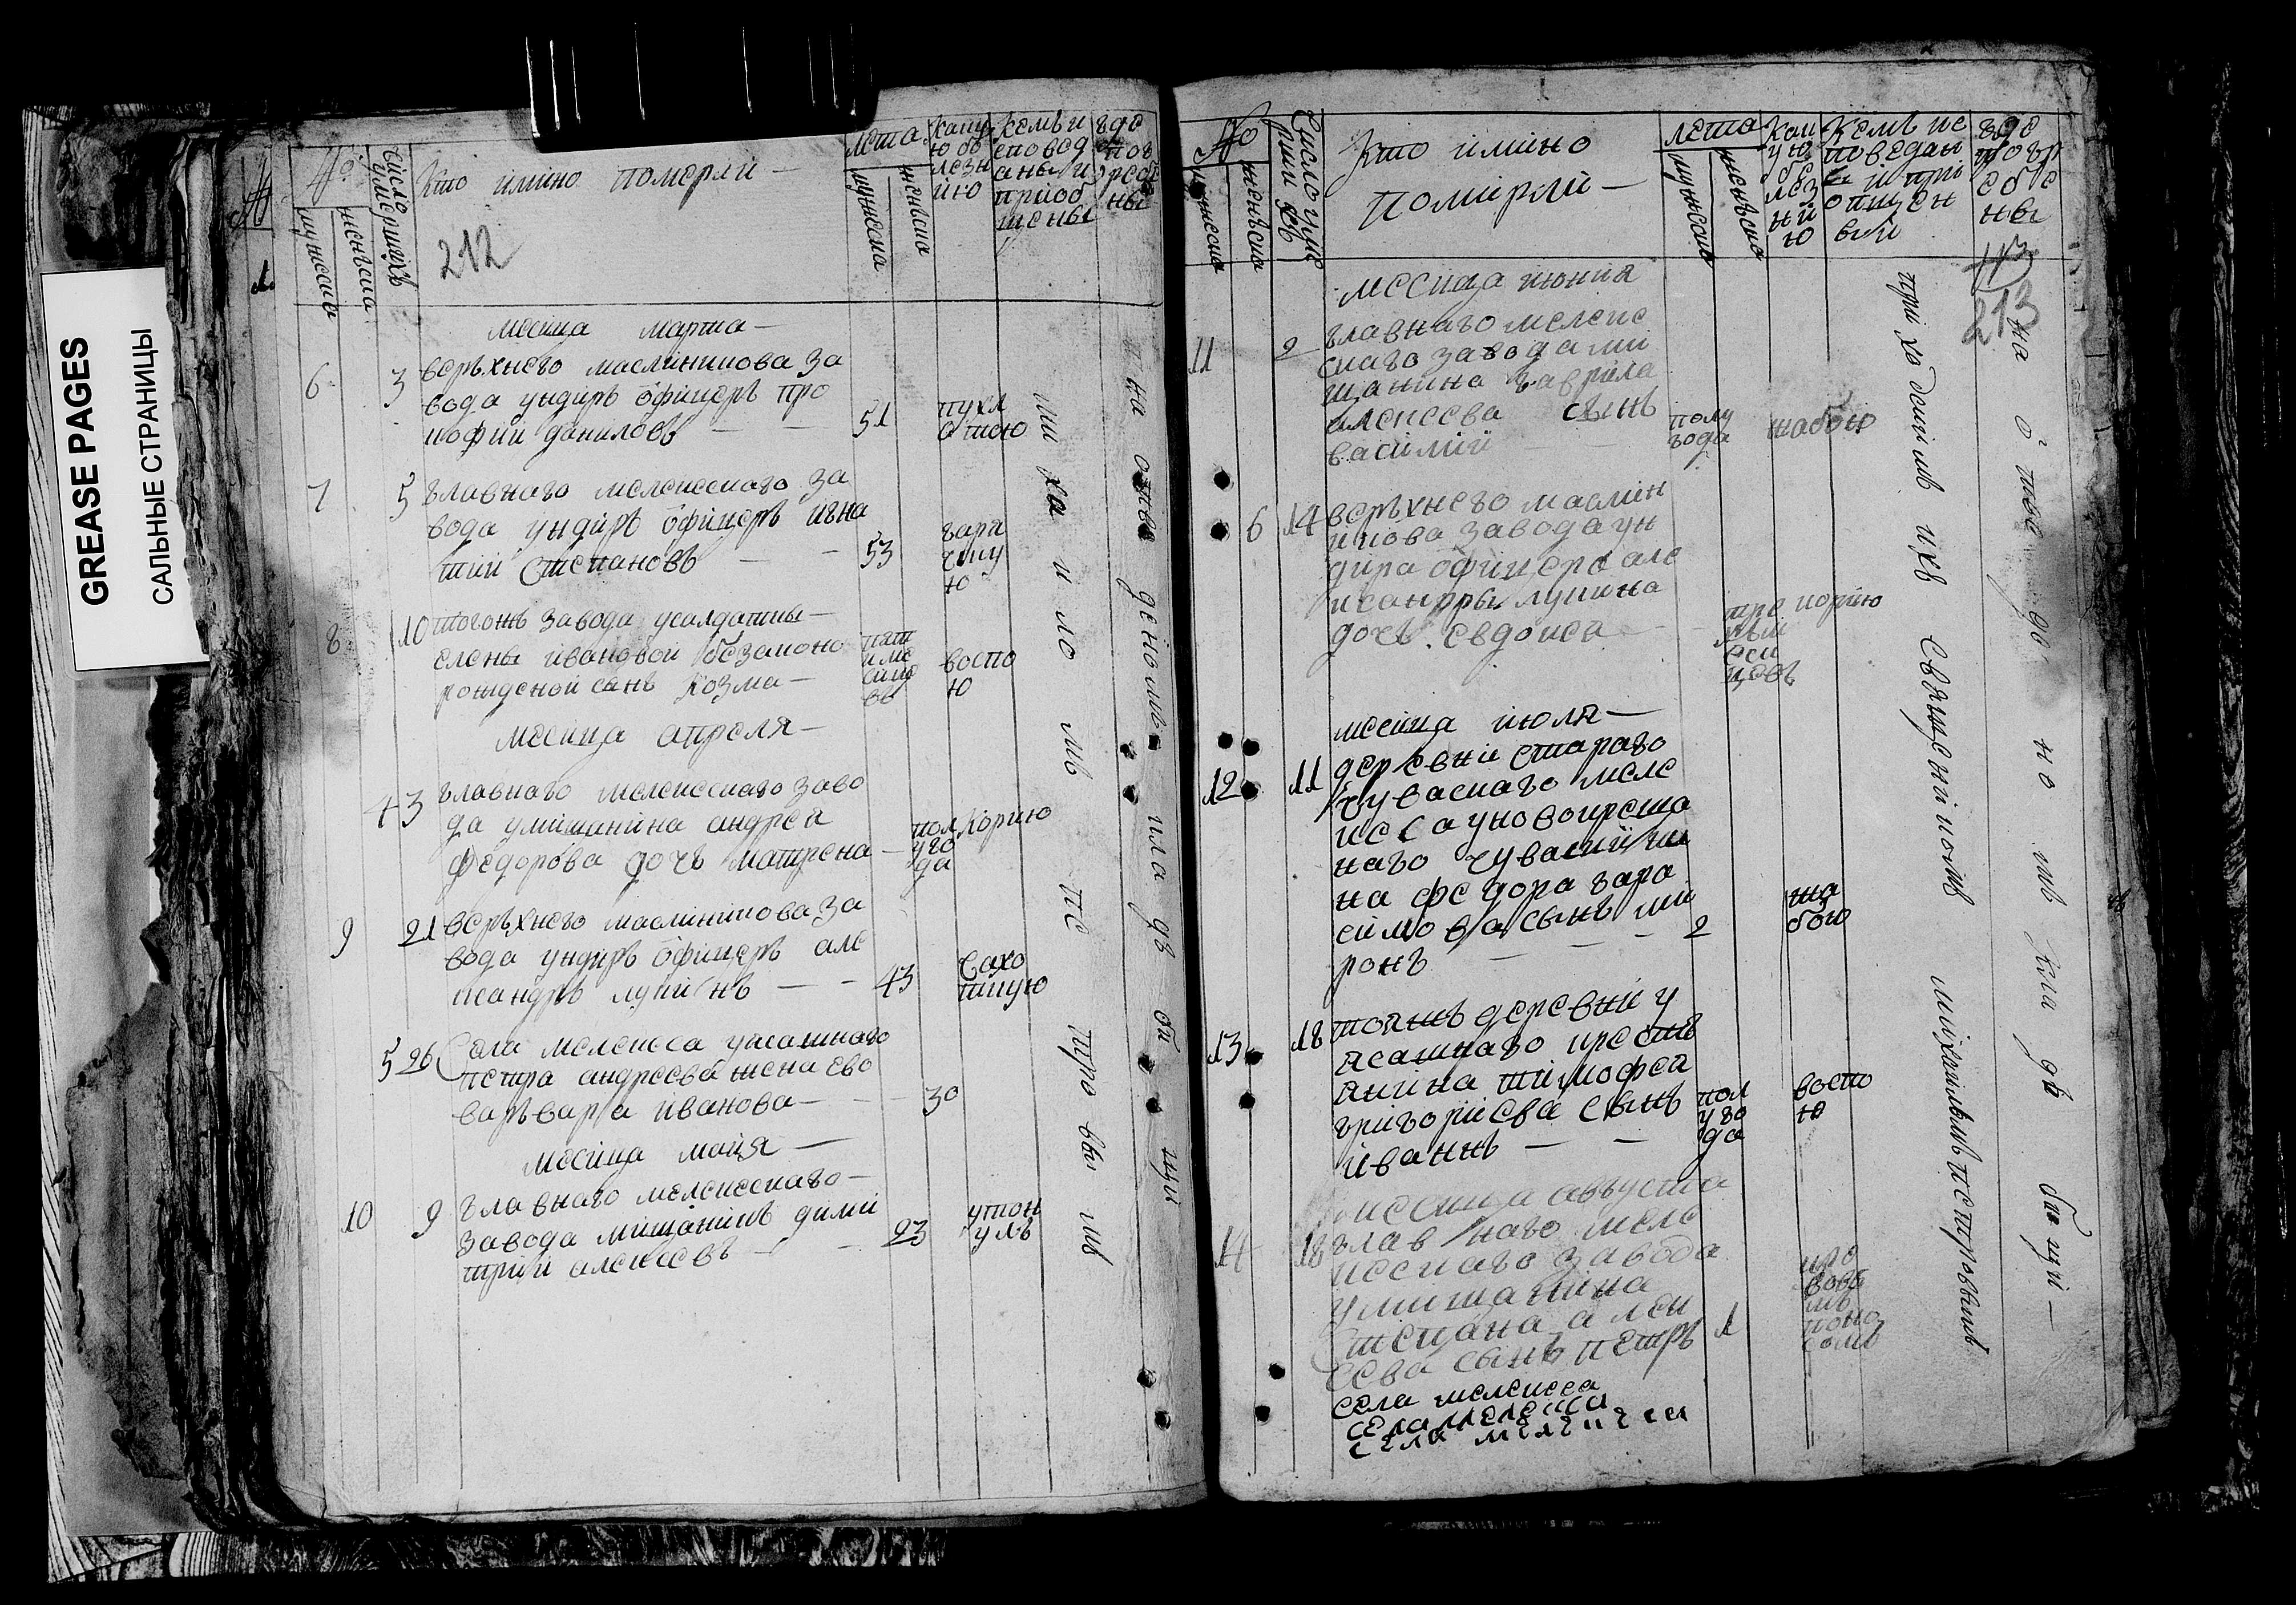 GREASE PAGES
САЛЬНЫЕ СТРАНИЦЫ
№
мужеска
женъска
число умершихъ
Кто имяно померли —
лета
мужеска
женъска
какую болезнию
Кемъ исповеданы и приобщены
где погребены
212
месяца марта —
6 3 верхнего маслиникова за
вода ундиръ офицеръ про
кофий даниловъ — — 51 пухлатою
7 5 главного мелекесскаго за
вода ундиръ офицеръ игна
тий Степановъ — — 53 гарячкую
8 10 тогожъ завода усалдатки —
елены ивановой беззаконо
рожденой сынъ козма — пяти месяцовъ воспою
месяца апреля —
4 3 главнаго мелекесскаго заво
да умищанина андрея
федорова дочь матрена — пол уго да Корию
9 21 верхнего маслиникова за
вода ундиръ офицеръ але
ксандръ лукинъ — — 43 Сухоткую
5 26 Села мелекеса уясашнаго
петра андреева жена ево
варъвара иванова — — 30
месяца майя —
10 9 главнаго мелекескаго —
завода мищанинъ дими
трий алексеевъ — — 23 утонулъ
№
мужеска
женъска
Кто имяно
помирли —
лета
мужеска
женъска
какую болезнию
Кемъ исповедан и приопщены
где погребены
213
месяца июния
11 2 главнаго мелеке
скаго завода ми
щанина гаврила
алексеева сынъ
василий — полу года жабою
6 14 верхнего маслин
икова завода ун
дира офицера але
ксандры лукина
дочь евдокea — тре мъ меси цовъ корию
месяца июля —
12 11 деревни стараго
чуваскаго меле
кеса уновокреще
наго чувашини
на федора гара
симова сынъ ми
ронъ — — — 2 жабою
13 18 тойжъ деревни у
ясашнаго крестъ
янина тимофея
григориева сынъ
иваннъ — — пол уго да воспою
месяца августа
14 18 главнаго меле
кескаго завода
умищанина
Степана алек
еева сынъ петръ 1 кро вовы мъ поно сомъ
села мелекеса
села мелекеса
села мелекеса
приходскимъ ихъ священикомъ михаиломъ петровымъ
на отведеномъ кладъбищи —